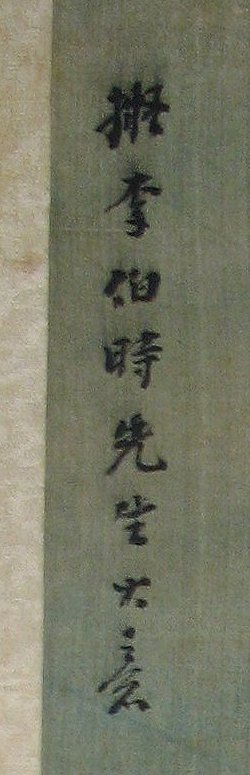 擬李伯時先生大意